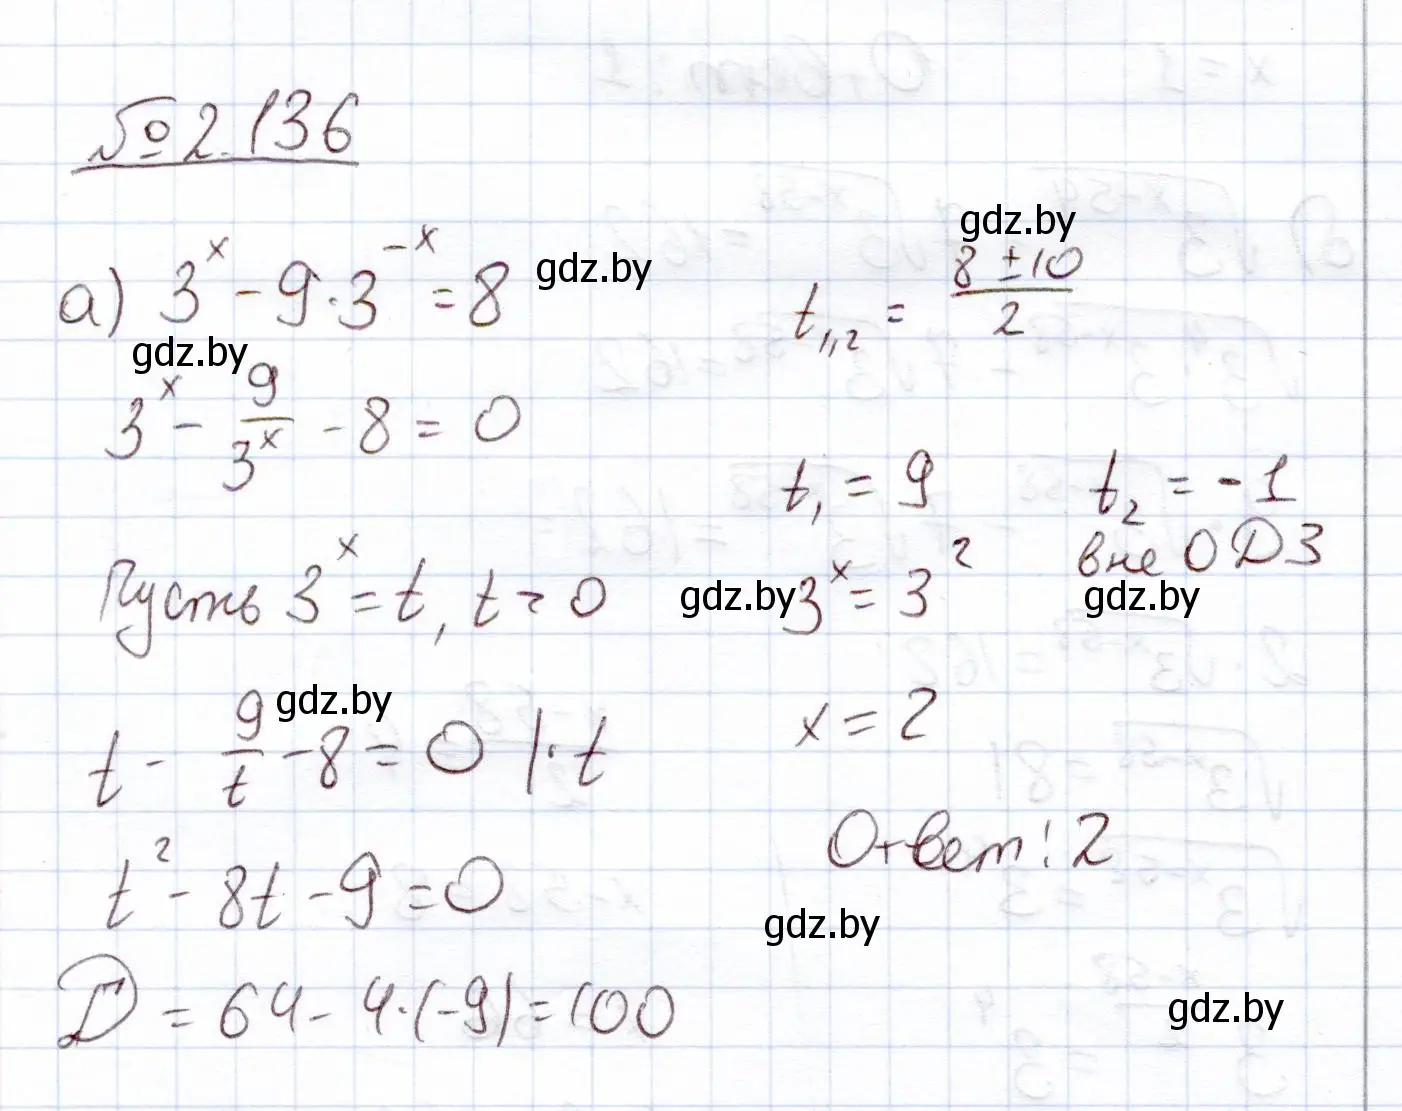 № 2.136
а) 3^x - 9·3^{-x} = 8
gdz.by
gdz.by
3^x - 9/3^x - 8 = 0
Пусть 3^x = t, t > 0
gdz.by
t - 9/t - 8 = 0 |·t
t² - 8t - 9 = 0
D = 64 - 4·(-9) = 100
gdz.by
t_{1,2} = (8 ± 10)/2
t_1 = 9 t_2 = -1
вне ОДЗ
gdz.by 3^x = 3² gdz.by
x = 2
Ответ: 2
gdz.by
gdz.by